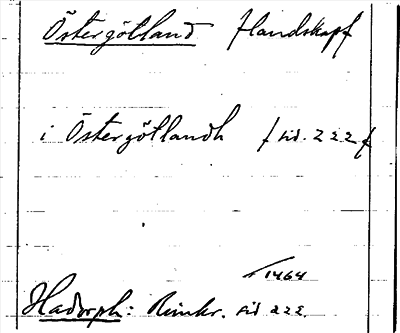 Östergötland [landskap]
i Östergötlandh [sid. 222]
1464
Hadorph: Rimkr. sid 222.